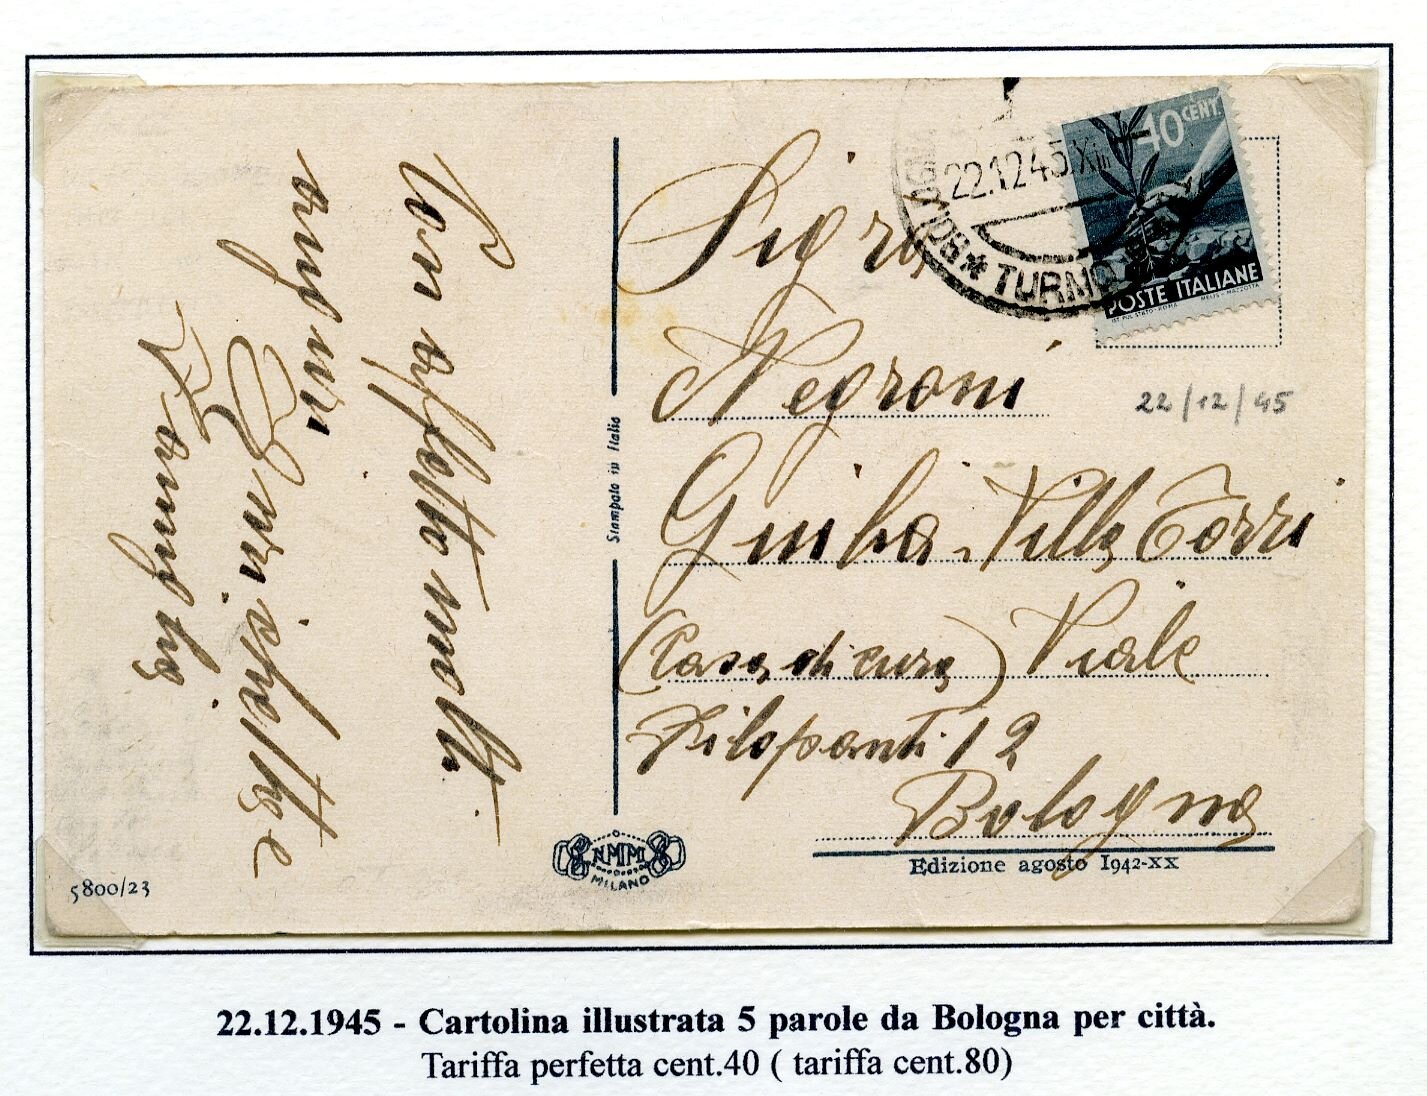 Con affettuosità
auguri
Enrichetta e
Famiglia
5800/23
Stampato in Italia
NMM
MILANO
22.12.45.XIII
TURNO
40 CENT
POSTE ITALIANE
IST. POL. STATO - ROMA MELIS - MAZZOTTA
Sigra
Negroni
22/12/45
Giulia Villa Torri
(Casa di cura) Viale
Filopanti 12
Bologna
Edizione agosto 1942-XX
22.12.1945 - Cartolina illustrata 5 parole da Bologna per città.
Tariffa perfetta cent.40 ( tariffa cent.80)